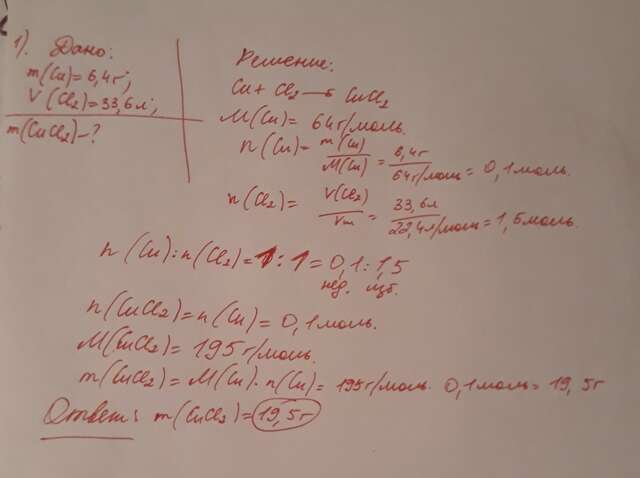 1). Дано:
m(Cu)=6,4г;
V(Cl₂)=33,6л;
m(CuCl₂)-?
Решение:
Cu + Cl₂ → CuCl₂
M(Cu)= 64г/моль.
n(Cu)= m(Cu)/M(Cu) = 6,4г/64г/моль = 0,1моль.
n(Cl₂)= V(Cl₂)/Vm = 33,6л/22,4л/моль = 1,5моль.
n(Cu):n(Cl₂)=1:1=0,1:1,5
нед. изб.
n(CuCl₂)=n(Cu)=0,1моль.
M(CuCl₂)=195г/моль.
m(CuCl₂)=M(Cu)·n(Cu)=195г/моль·0,1моль=19,5г
Ответ: m(CuCl₂)=19,5г